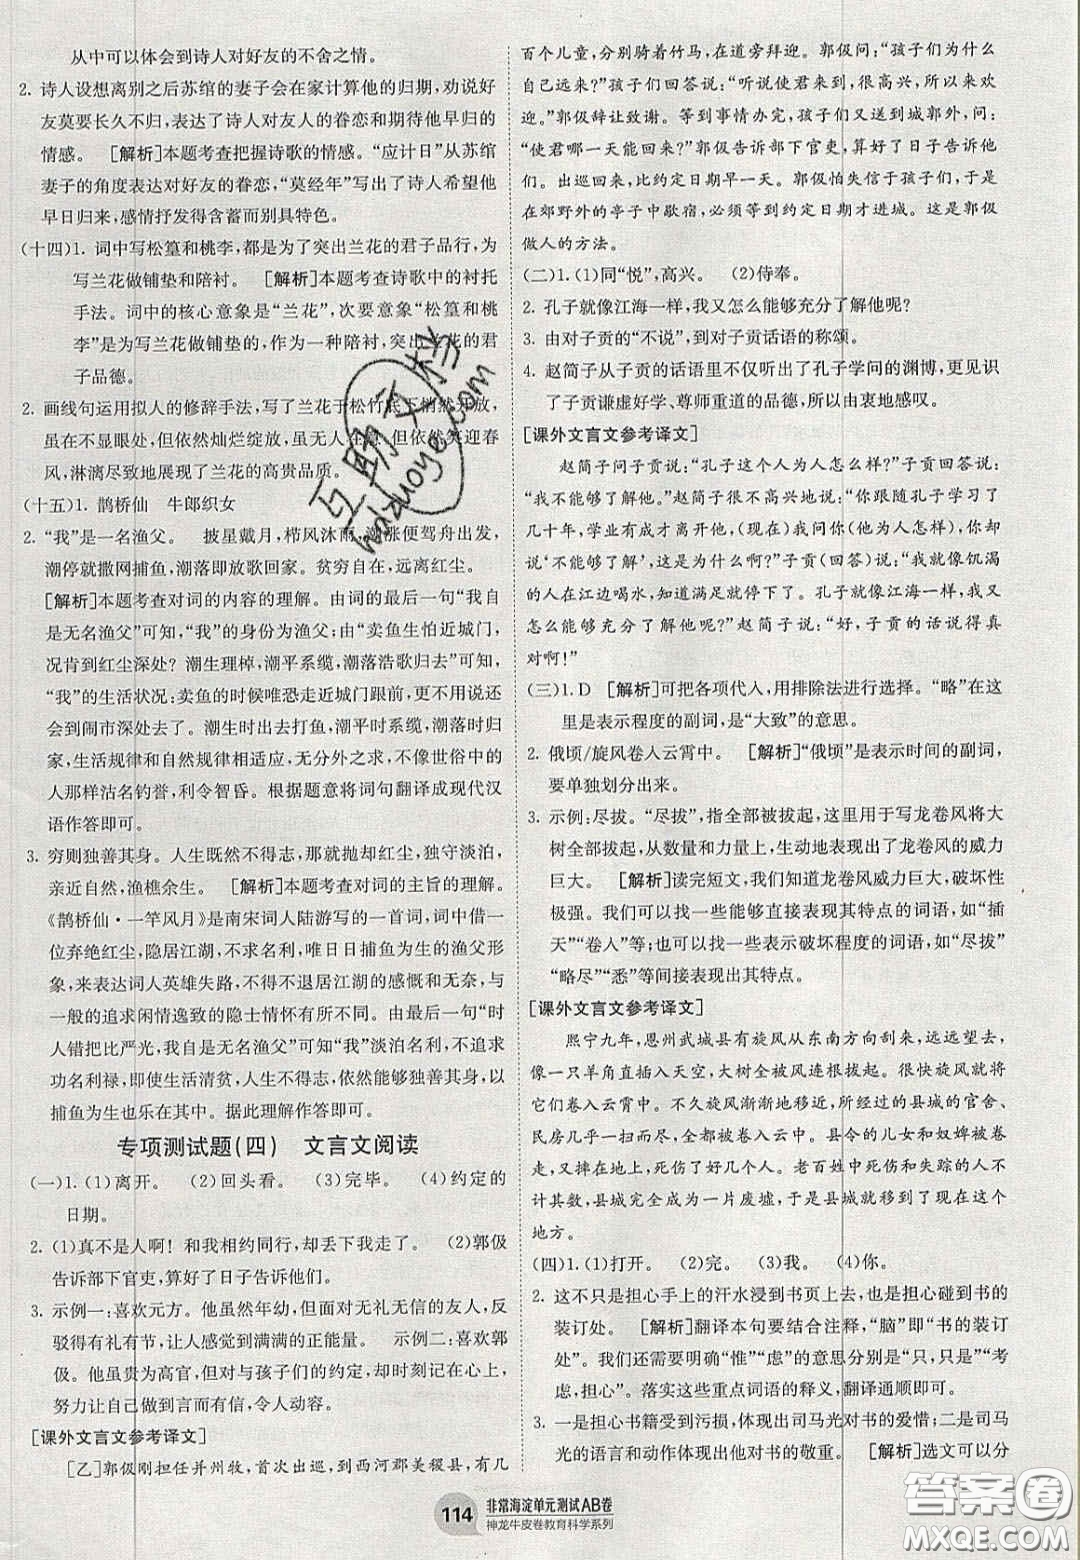 从中可以体会到诗人对好友的不舍之情。
2. 诗人设想离别之后苏绾的妻子会在家计算他的归期，劝说好
友莫要长久不归，表达了诗人对友人的眷恋和期待他早归的
情感。 [解析]本题考查把握诗歌的情感。“应计日”从苏绾
妻子的角度表达对好友的眷恋，“莫经年”写出了诗人希望他
早日归来，感情抒发得含蓄而别具特色。
(十四)1. 词中写松篁和桃李，都是为了突出兰花的君子品行，为
写兰花做铺垫和陪衬。 [解析]本题考查诗歌中的衬托
手法。词中的核心意象是“兰花”，次要意象“松篁和桃
李”是为写兰花做铺垫的，作为一种陪衬，突出兰花的君
子品德。
2. 画线句运用拟人的修辞手法，写了兰花于松竹底下悄然开放，
虽在不显眼处，但依然灿烂绽放，虽无人注意，但依然笑迎春
风，淋漓尽致地展现了兰花的高贵品质。
(十五)1. 鹊桥仙 牛郎织女
2. “我”是一名渔父。 披星戴月，栉风沐雨，潮涨便驾舟出发，
潮停就撒网捕鱼，潮落即放歌回家。贫穷自在，远离红尘。
[解析]本题考查对词的内容的理解。由词的最后一句“我自
是无名渔父”可知，“我”的身份为渔父；由“卖鱼生怕近城门，
况肯到红尘深处？潮生理棹，潮平系缆，潮落浩歌归去”可知，
“我”的生活状况：卖鱼的时候唯恐走近城门跟前，更不用说会
到闹市深处去了。潮生时出去打鱼，潮平时系缆，潮落时归家，
生活规律和自然规律相适应，无分外之求，不像世俗中的
人那样沽名钓誉，利令智昏。根据题意将词句翻译成现代汉
语作答即可。
3. 穷则独善其身。人生既然不得志，那就抛却红尘，独守淡泊，
亲近自然，渔樵余生。 [解析]本题考查对词的主旨的理解。
《鹊桥仙·一竿风月》是南宋词人陆游写的一首词，词中借一
位弃绝红尘，隐居江湖，不求名利，唯日日捕鱼为生的渔父形象，
来表达词人英雄失路，不得志而退居江湖的感慨和无奈，与
一般的追求闲情逸致的隐士情怀有所不同。由最后一句“时
人错把比严光，我自是无名渔父”可知“我”淡泊名利，不追求
功名利禄，即使生活清贫，人生不得志，依然能够独善其身，以
捕鱼为生也乐在其中。据此理解作答即可。
专项测试题(四) 文言文阅读
(一)1. (1)离开。 (2)回头看。 (3)完毕。 (4)约定的
日期。
2. (1)真不是人啊！和我相约同行，却丢下我走了。 (2)郭伋
告诉部下官吏，算好了日子告诉他们。
3. 示例一：喜欢元方。他虽然年幼，但面对无礼无信的友人，反
驳得有礼有节，让人感觉到满满的正能量。 示例二：喜欢郭
伋。他虽为高官，但对与孩子们的约定，却时刻记在心上，努力
让自己做到言而有信，令人动容。
[课外文言文参考译文]
[乙]郭伋刚担任并州牧，首次出巡，到西河郡美稷县，有几
百个儿童，分别骑着竹马，在道旁拜迎。郭伋问：“孩子们为什么
自己远来？”孩子们回答说：“听说使君来到，很高兴，所以来欢
迎。”郭伋辞让致谢。等到事情办完，孩子们又送到城郭外，问：
“使君哪一天能回来？”郭伋告诉部下官吏，算好了日子告诉他
们。出巡回来，比约定日期早一天。郭伋怕失信于孩子们，于是
在郊野外的亭子中歇宿，必须等到约定日期才进城。这是郭伋
做人的方法。
(二)1. (1)同“悦”，高兴。 (2)侍奉。
2. 孔子就像江海一样，我又怎么能够充分了解他呢？
3. 由对子贡的“不说”，到对子贡话语的称颂。
4. 赵简子从子贡的话语里不仅听出了孔子学问的渊博，更了解
了子贡谦虚好学、尊师重道的品德，所以由衷地感叹。
[课外文言文参考译文]
赵简子问子贡说：“孔子这个人为人怎么样？”子贡回答说：
“我不能够了解他。”赵简子很不高兴地说：“你跟随孔子学习了
几十年，学业有成才离开他，(现在)我问你(他为人怎么样)，你却
说‘不能够了解’，为什么呢？”子贡(回答)说：“我就像饥渴
的人在江边喝水，知道满足就停下了。孔子就像江海一样，我又
怎么能够充分了解他呢？”赵简子说：“好，子贡的话说得真
对啊！”
(三)1. D [解析]可把各项代入，用排除法进行选择。“略”在这
里是表示程度的副词，是“大致”的意思。
2. 俄顷/旋风卷人云宵中。 [解析]“俄顷”是表示时间的副词，
要单独划分出来。
3. 示例：尽拔。“尽拔”，指全部被拔起，这里用于写龙卷风将大
树全部拔起，从数量和力量上，生动地表现出了龙卷风的威力
巨大。 [解析]读完短文，我们知道龙卷风威力巨大，破坏性
极强。我们可以找一些能够直接表现其特点的词语，如“插
天”“卷人”等；也可以找一些表示破坏程度的词语，如“尽拔”
“略尽”“悉”等间接表现出其特点。
[课外文言文参考译文]
熙宁九年，恩州武城县有旋风从东南方向刮来，远远望去旋风
像一只羊角直插入天空，大树全被风连根拔起。很快旋风就把
它们卷入云霄中。不久旋风渐渐地移近，经过的县城的官舍、
民房几乎一扫而尽，全都卷入云中。县令的儿女和奴婢被卷
去又摔到地上，死伤了好几个人。老百姓中死伤和失踪的人不
计其数，县城完全成为一片废墟，于是县城就移到了现在这个
地方。
(四)1. (1)打开。 (2)完。 (3)我。 (4)你。
2. 这不只是担心手上的汗水浸到书页上去，也是担心碰到书的
装订处。 [解析]翻译本句要结合注释，“脑”即“书的装订
处”。我们还需要明确“惟”“虑”的意思分别是“只，只是”“考
虑，担心”。落实这些重点词语的释义，翻译通顺即可。
3. 一是担心书籍受到污损，体现出司马光对书的爱惜；二是司马
光的语言和动作体现出他对书的敬重。 [解析]选文可以分
114
非常海淀单元测试AB卷
神龙牛皮卷教育科学系列
互助文档
huzuoye.com
答案圈
MXQE.COM